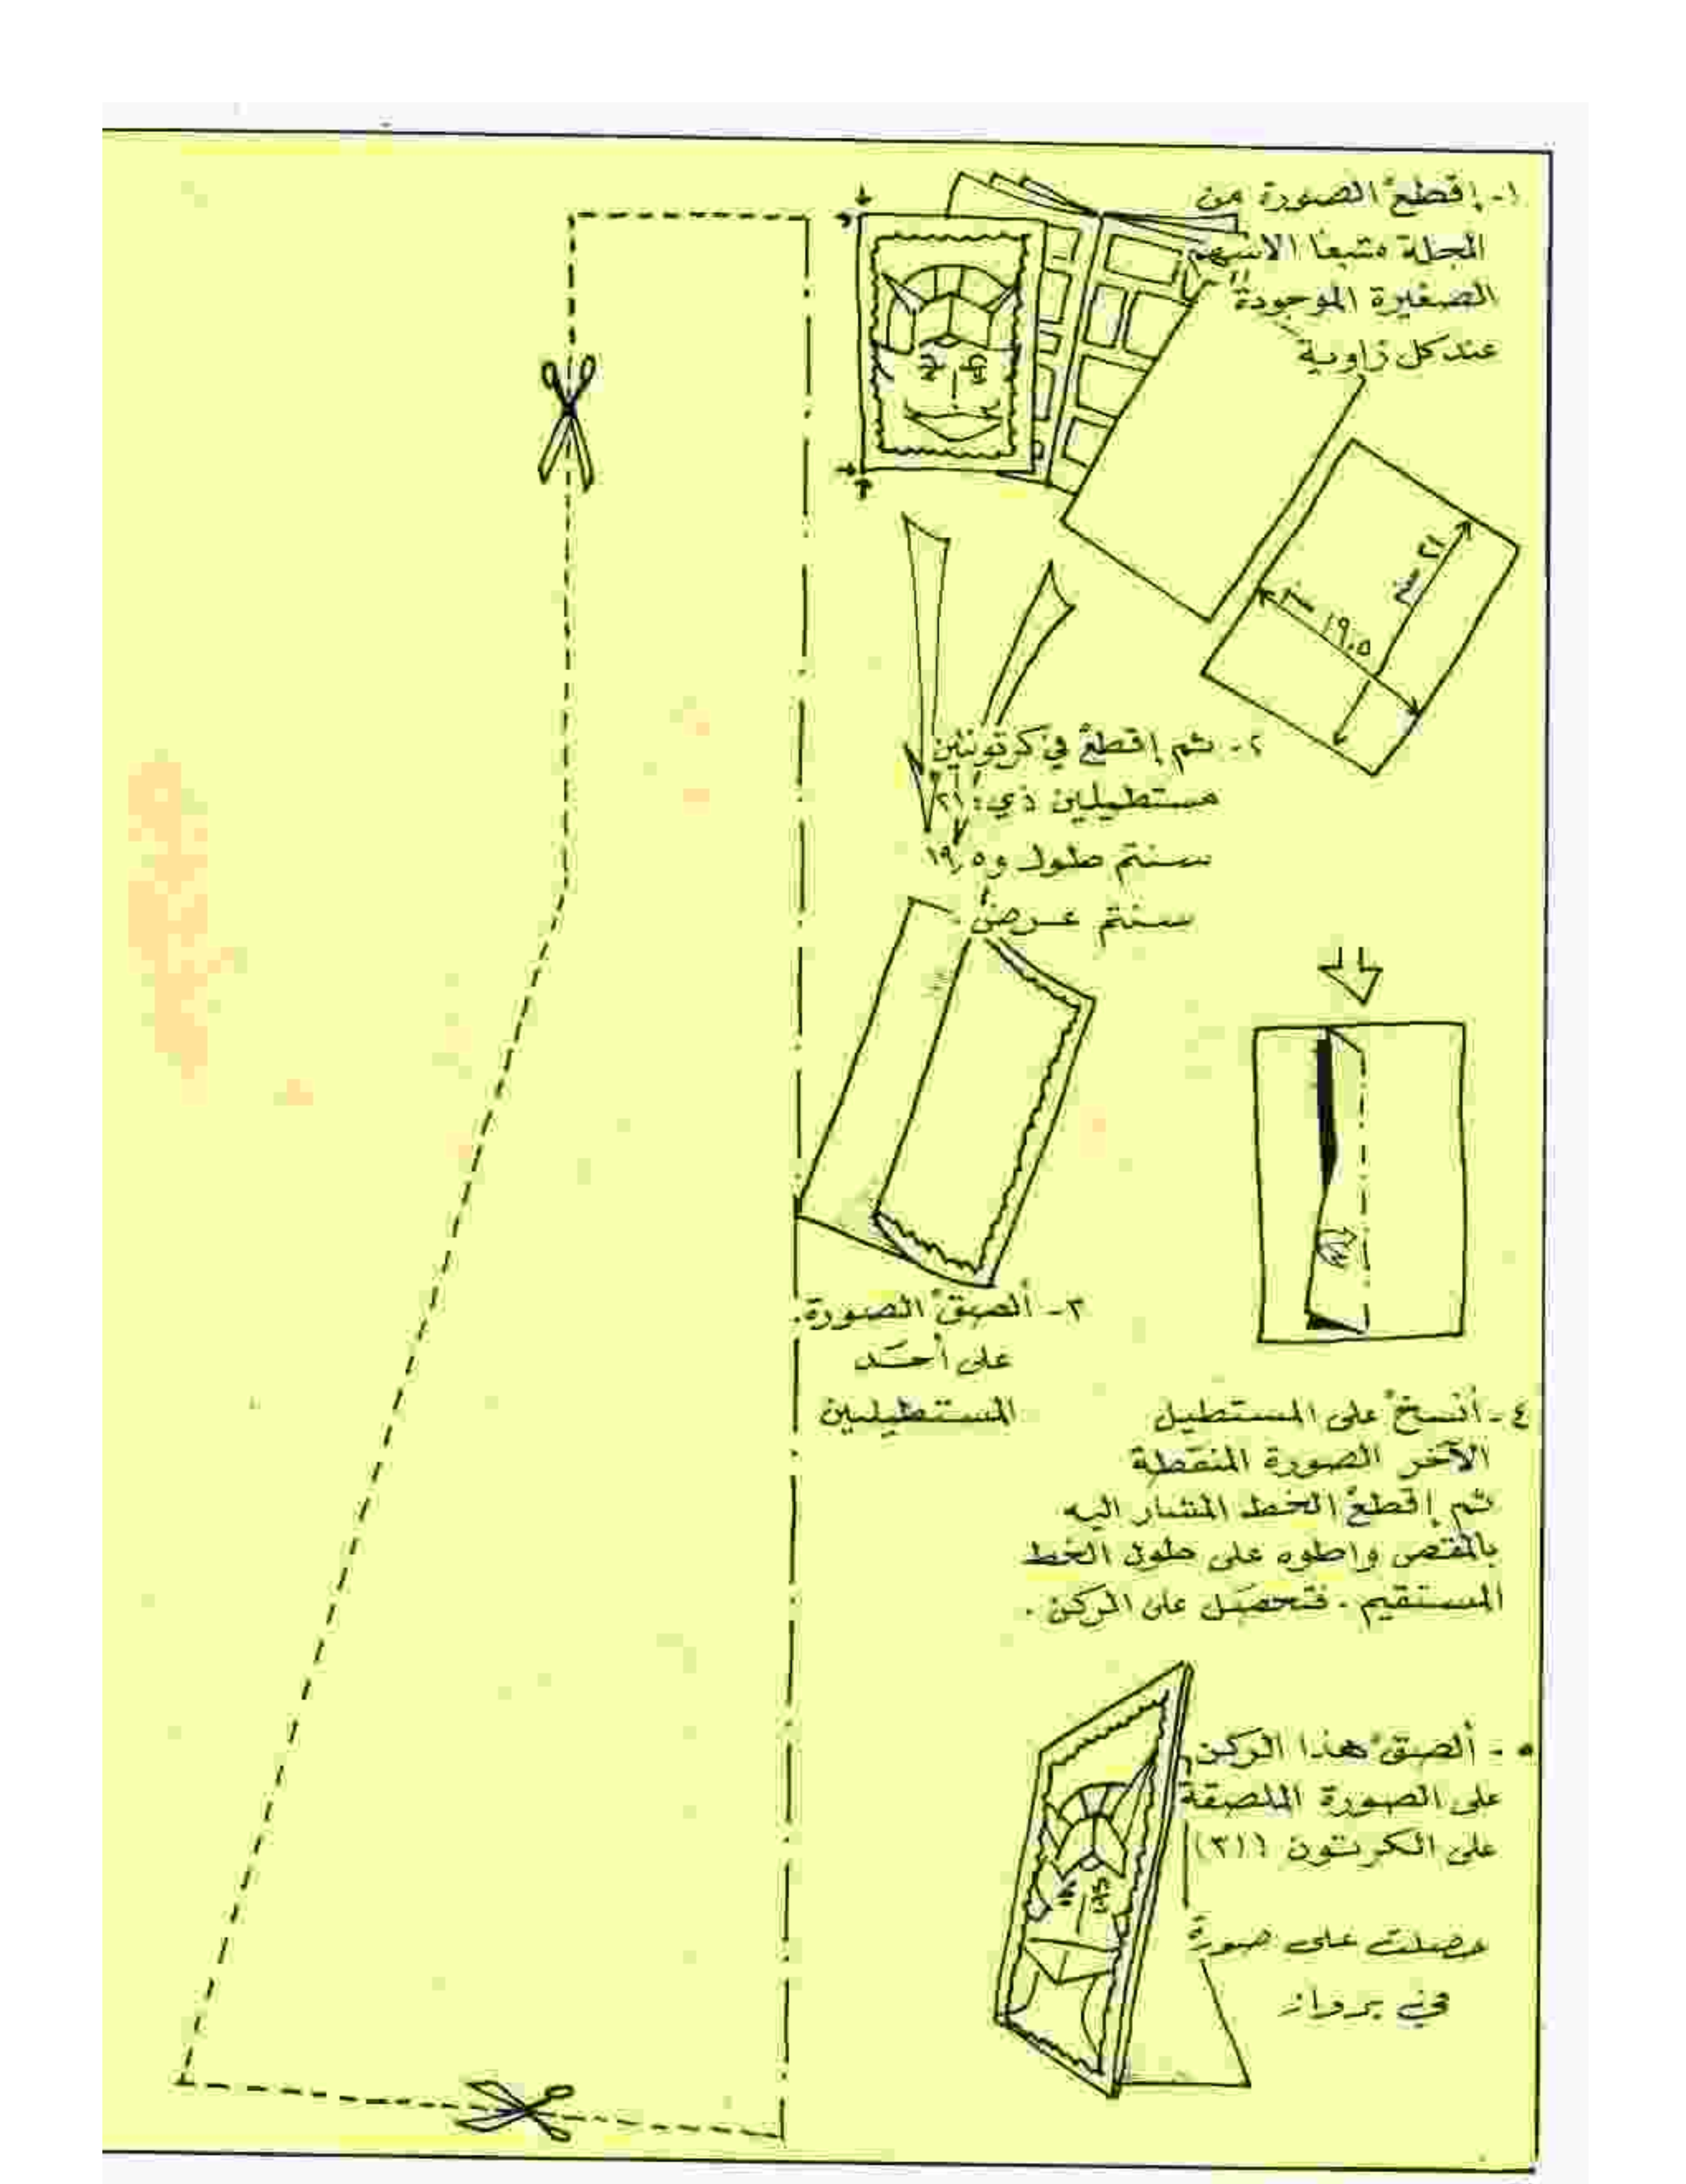 ١- إقطعْ الصورة من
المجلة متبعًا الاسهم
الصغيرة الموجودة
عند كل زاوية
٢١ سنتم
١٩,٥ سنتم
٢- ثم إقطعْ في كرتونتين
مستطيلين ذي: ٢١
سنتم طول و ١٩,٥
سنتم عرض
٣- ألصقْ الصورة
على أحَد
المستطيلين
٤- أنسخْ على المستطيل
الآخر الصورة المنقطة
ثم إقطعْ الخط المشار اليه
بالمقص واطوه على طول الخط
المستقيم. فتحصَل على الركن.
٥- ألصقْ هذا الركن
على الصورة الملصقة
على الكرتون (٣)
حصلت على صورة
في برواز